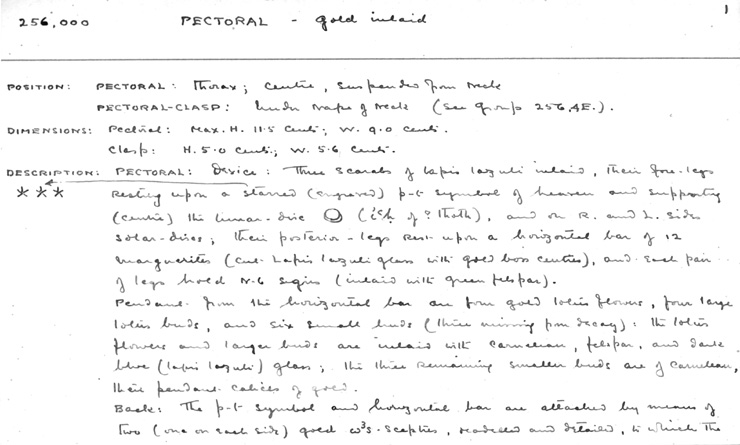 1
256,000 PECTORAL - gold inlaid
POSITION: PECTORAL: Thorax; centre, suspended from neck
PECTORAL-CLASP: Under nape of neck (see group 256,4E.).
DIMENSIONS: Pectoral: Max. H. 11.5 cent.; W. 9.0 cent.
Clasp: H. 5.0 cent.; W. 5.6 cent.
DESCRIPTION: PECTORAL: Device: Three scarabs of lapis lazuli inlaid, their fore-legs
*** resting upon a starred (engraved) p-t symbol of heaven and supporting
(centre) the lunar-disc (of ? Thoth), and on R. and L. sides
solar-discs; their posterior-legs rest upon a horizontal bar of 12
marguerites (cut lapis lazuli glass with gold boss centres), and each pair
of legs hold N-b signs (inlaid with green felspar).
Pendant from the horizontal bar are four gold lotus flowers, four large
lotus buds, and six small buds (three missing from decay): the lotus
flowers and larger buds are inlaid with carnelian, felspar, and dark
blue (lapis lazuli) glass; the three remaining smaller buds are of carnelian,
their pendant calices of gold.
Back: The p-t symbol and horizontal bar are attached by means of
two (one on each side) gold w3s-sceptres, modelled and detailed, to which the